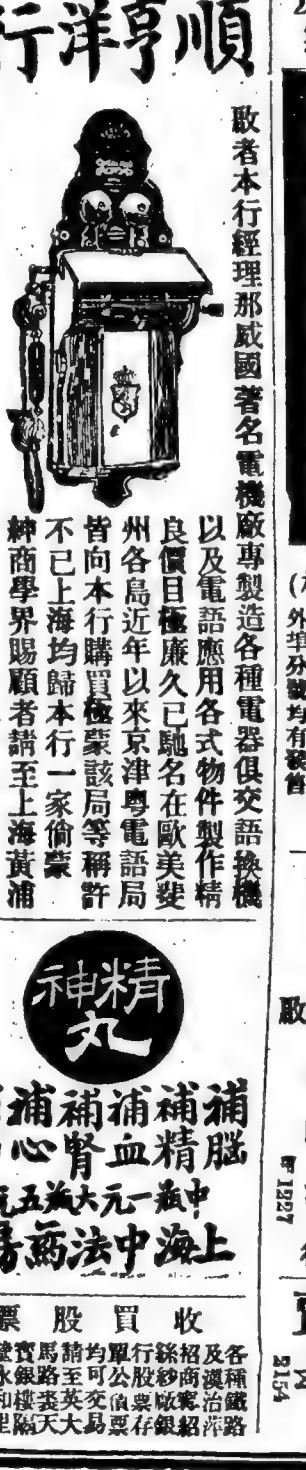 順亨洋行
啟者本行經理那威國著名電機廠專製造各種電器俱交語換機
以及電語應用各式物件製作精
良價目極廉久已馳名在歐美斐
州各島近年以來京津粤電語局
皆向本行購買極蒙該局等稱許
不已上海均歸本行一家倘蒙
紳商學界賜顧者請至上海黃浦
精神丸
補腦
補精
補血
補腎
補心
中瓶一元大瓶五元
上海中法葯房
收買股票
各種鐵路
及漢冶萍
招商電紹
絲紗廠銀
行股票存
單公債票
均可交易
請至英大
馬路裘天
寶銀樓隔
外埠分號均有發售
啟
1227
2154